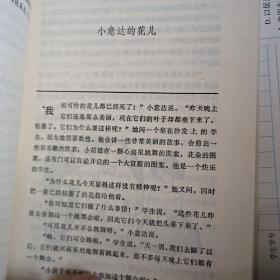 小意达的花儿
“我的可怜的花儿都已经死了！”小意达说。“昨天晚上
它们还是那么美丽，现在它们的叶子却都垂下来了，
枯萎了。它们为什么要这样呢？”她问一个坐在沙发上的学
生，因为她很喜欢他。他会讲一些非常美丽的故事，会剪出一
些很有趣的图案：小姑娘在一颗心房里跳舞的图案、花朵的图
案，还有门可以自动开启的一个大宫殿的图案。他是一个快乐
的学生。
“为什么花儿今天显得这样没有精神呢？”她又问，同时
把一束已经枯萎了的花指给他看。
“你可知道它们做了什么事情！”学生说。“这些花儿昨
夜去参加过一个跳舞会啦，因此它们今天就把头垂下来了。”
“可是花儿并不会跳舞呀，”小意达说。
“嗨，它们可会跳啦，”学生说，“天一黑，我们去睡了以
后，它们就兴高采烈地围着跳起来。差不多每天晚上它们都有
一个舞会。”
学生学号